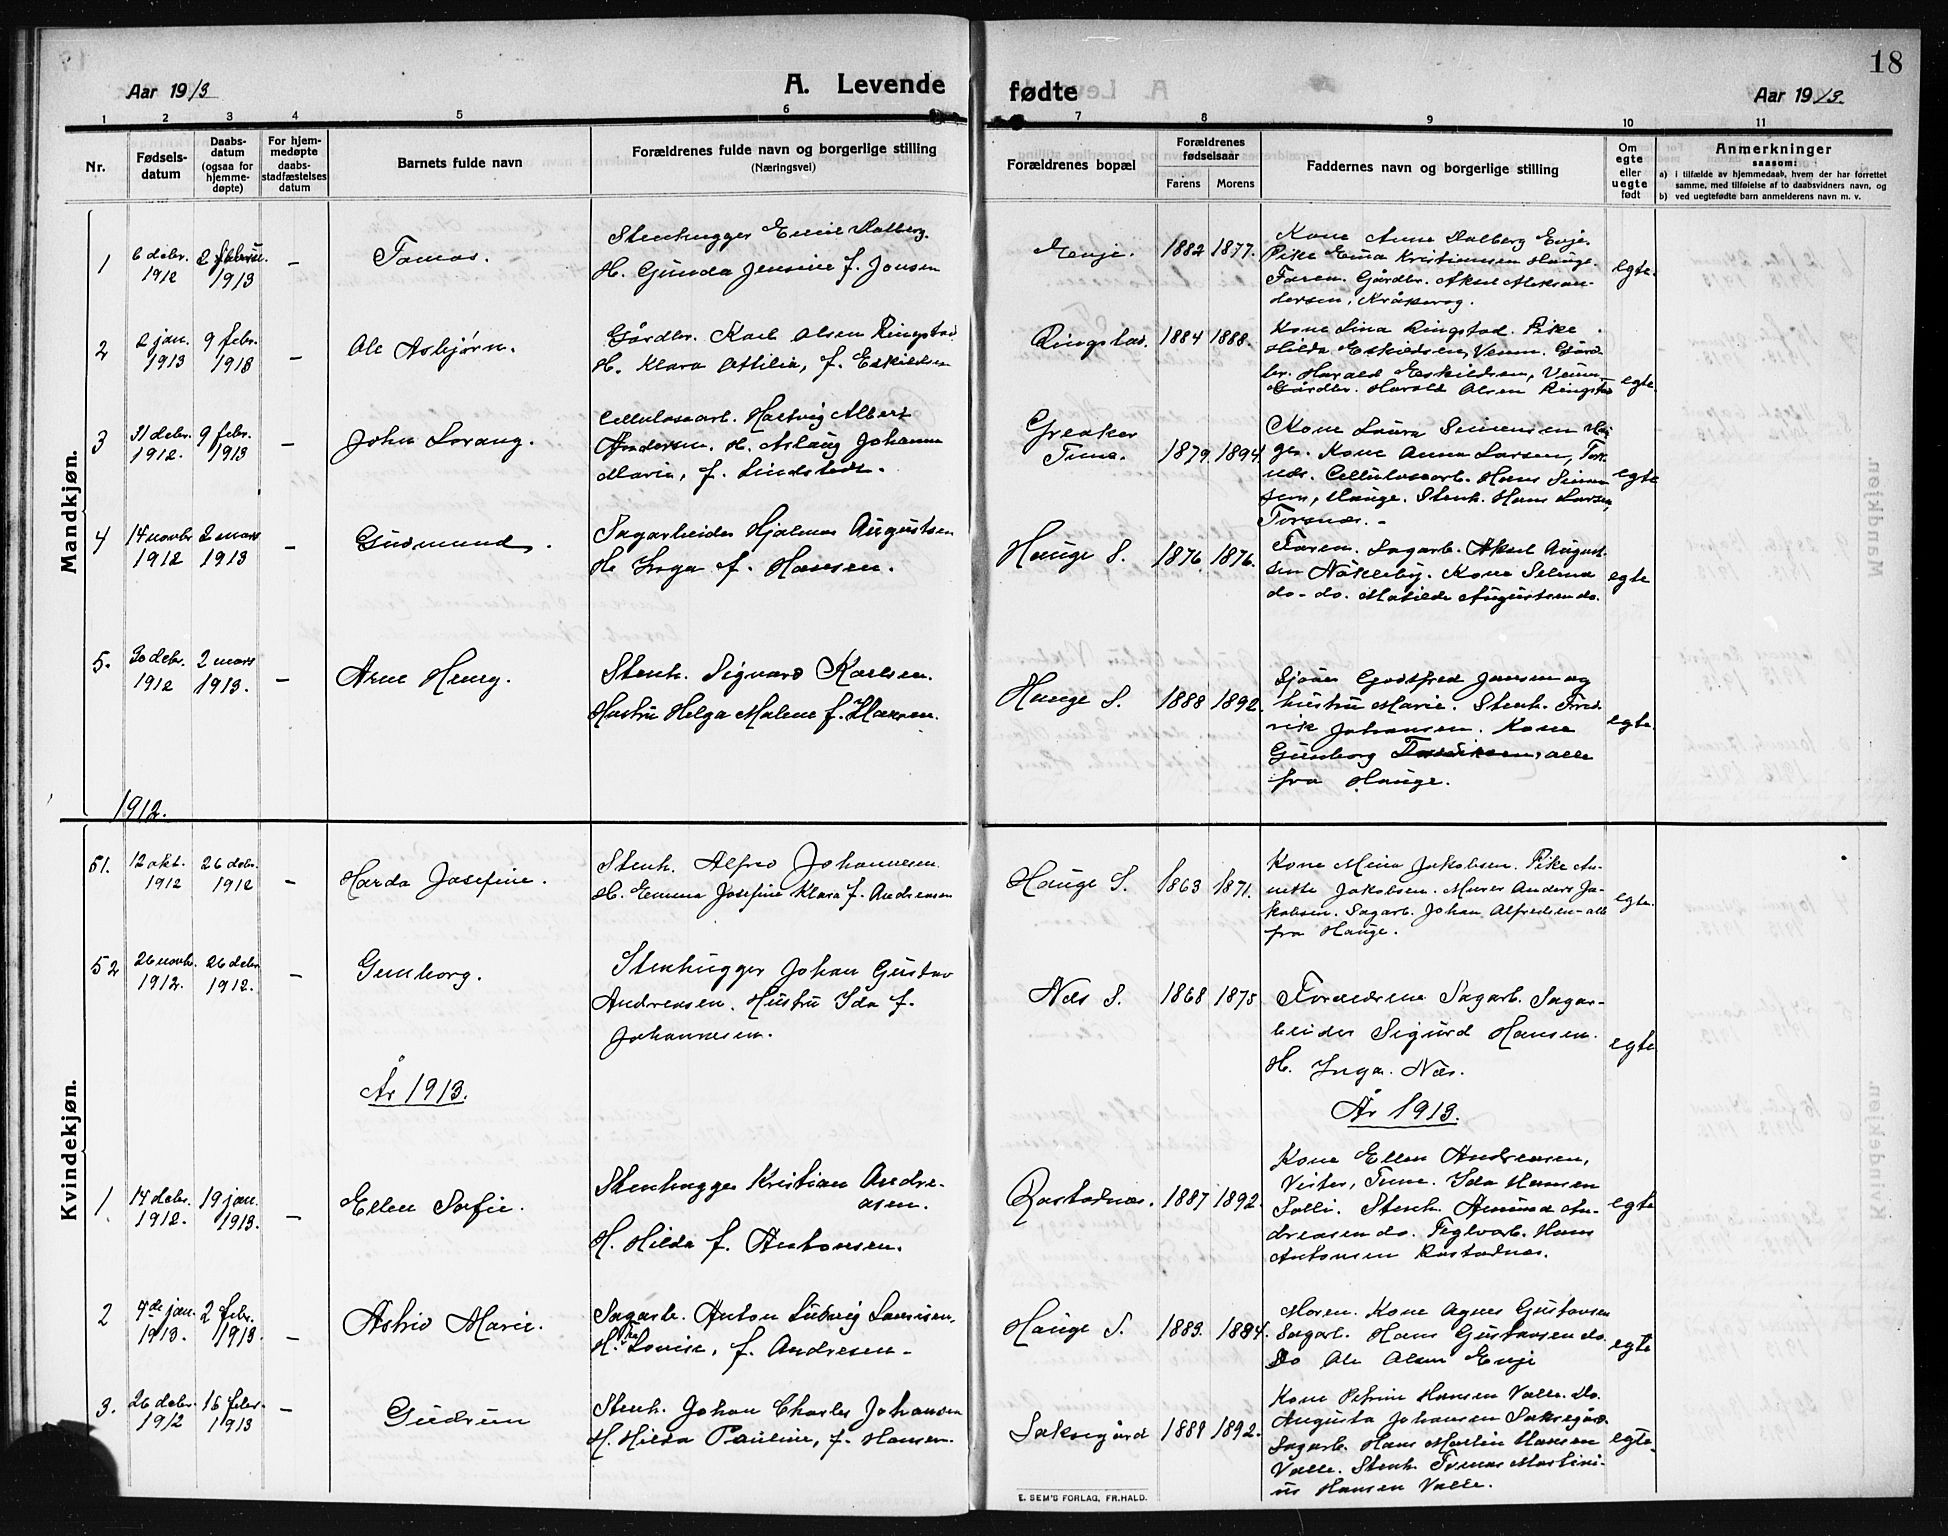 18
Aar 1913
A. Levende
fødte
Aar 1913.
1 2 3 4 5 6 7 8 9 10 11
Nr.
Fødsels-
datum
Daabs-
datum
(ogsaa for
hjemme-
døpte)
For hjem-
medøpte
daabs-
stadfæstelses
datum
Barnets fulde navn
Forældrenes fulde navn og borgerlige stilling
(Næringsvei)
Forældrenes bopæl
Forældrenes
fødselsaar
Farens Morens
Faddernes navn og borgerlige stilling
Om
egte
eller
uegte
født
Anmerkninger
saasom:
a) i tilfælde av hjemmedaab, hvem der har forrettet
samme, med tilføielse af to daabsvidners navn, og
b) ved uegtefødte barn anmelderens navn m. v.
Mandkjøn.
1 6 debr. 2 februar.
1912 1913 –
Tomas.
Stenhugger Emil Dalberg.
H. Gunda Jensine f. Jensen
Enje. 1882 1877.
Kone Anna Dalberg Enje.
Pike Emma Kristiansen Hauge.
Faren. Gårdbr. Aksel Aleksan-
dersen, Kråkerøy.
egte.
2 2 jan. 9 febr.
1913 1913 –
Ole Asbjørn.
Gårdbr. Karl Olsen Ringstad
H. Klara Othilia, f. Eskildsen
Ringstad. 1884 1888.
Kone Lina Ringstad. Pike
Hilda Eskildsen, Veum. Gård-
br. Harald Eskildsen, Veum
Gårdbr. Harald Olsen Ringstad
egte.
3 31 debr. 9 febr.
1912. 1913 –
John Lorang.
Cellulosearb. Hartvig Albert
Andersen. H. Aslaug Johanne
Maria, f. Lindstedt.
Greaker
Tune. 1879. 1894.
Kone Laura Simensen Hau
ge. Kone Anna Larsen, Tors-
næs. Cellulosearb. Hans Simen
sen, Hauge. Stenh. Hans Larsen,
Torsnæs. –
egte
4 14 novbr 2 mars
1912 1913 –
Gudmund.
Sagarbeider Hjalmar Augustsen
H. Inga f. Hansen.
Hauge S. 1876. 1876.
Faren. Sagarb. Aksel August-
sen Nökleby. Kone Selma
do – do. Matilde Augustsen do.
egte
5. 30 debr. 2 mars
1912 1913. –
Arne Henry.
Stenh. Sigvard Karlsen.
Hustru Helga Malene f. Haagen.
Hauge S. 1888 1892.
Sjöm. Godtfred Jansen og
hustru Marie. Stenh. Fred-
rik Johansen. Kone
Gunborg alle
fra Hauge.
egte.
1912.
Kvindekjøn.
51. 12 okt. 26 debr.
1912 1912 –
Harda Josefine.
Stenh. Alfred Johannesen
H. Emma Josefine Klara f. Andreasen
Hauge S. 1863 1871.
Kone Mina Jakobsen. Pike An-
nette Jakobsen. Murer Anders Ja-
kobsen. Sagarb. Johan Alfredsen – alle
fra Hauge.
egte.
52 26 novb. 26 debr
1912. 1912. –
Gunborg.
Stenhugger Johan Gustav
Andreasen. Hustru Ida f.
Johannesen.
Næs S. 1868 1875
Forældrene Sagarb. Sagar-
beider Sigurd Hansen.
H. Inga. Næs.
egte
År 1913.
År 1913.
1. 14 debr. 19 jan.
1912. 1913. –
Ellen Sofie.
Stenhugger Kristian Andre-
asen.
H. Hilda f. Antonsen.
Rostadnæs. 1887 1892.
Kone Ellen Andreasen,
Vister, Tune. Ida Hansen
Solli. Stenh. Amund An-
dreasen do. Teglvarb. Hans
Antonsen Rostadnæs.
egte
2 4de jan. 2 febr.
1913. 1913 –
Astrid Marie.
Sagarb. Anton Ludvig Lauritsen,
H. Lovise, f. Andresen –
Hauge S. 1883. 1884.
Moren. Kone Agnes Gustavsen
Sagarb. Hans Gustavsen do.
Do Ole Olsen Enje
egte
3. 26 debr. 16 febr.
1912 1913 –
Gudrun
Stenh. Johan Charles Johansen
H. Hilda Pauline, f. Hansen.
Saksegård 1889 1892.
Kone Petrine Hansen Valle. Do.
Augusta Johansen Saksegård.
Sagarb. Hans Martin Hansen
Valle. Stenh. Tomas Martini-
us Hansen Valle.
egte.
E. SEM'S FORLAG, FR.HALD.